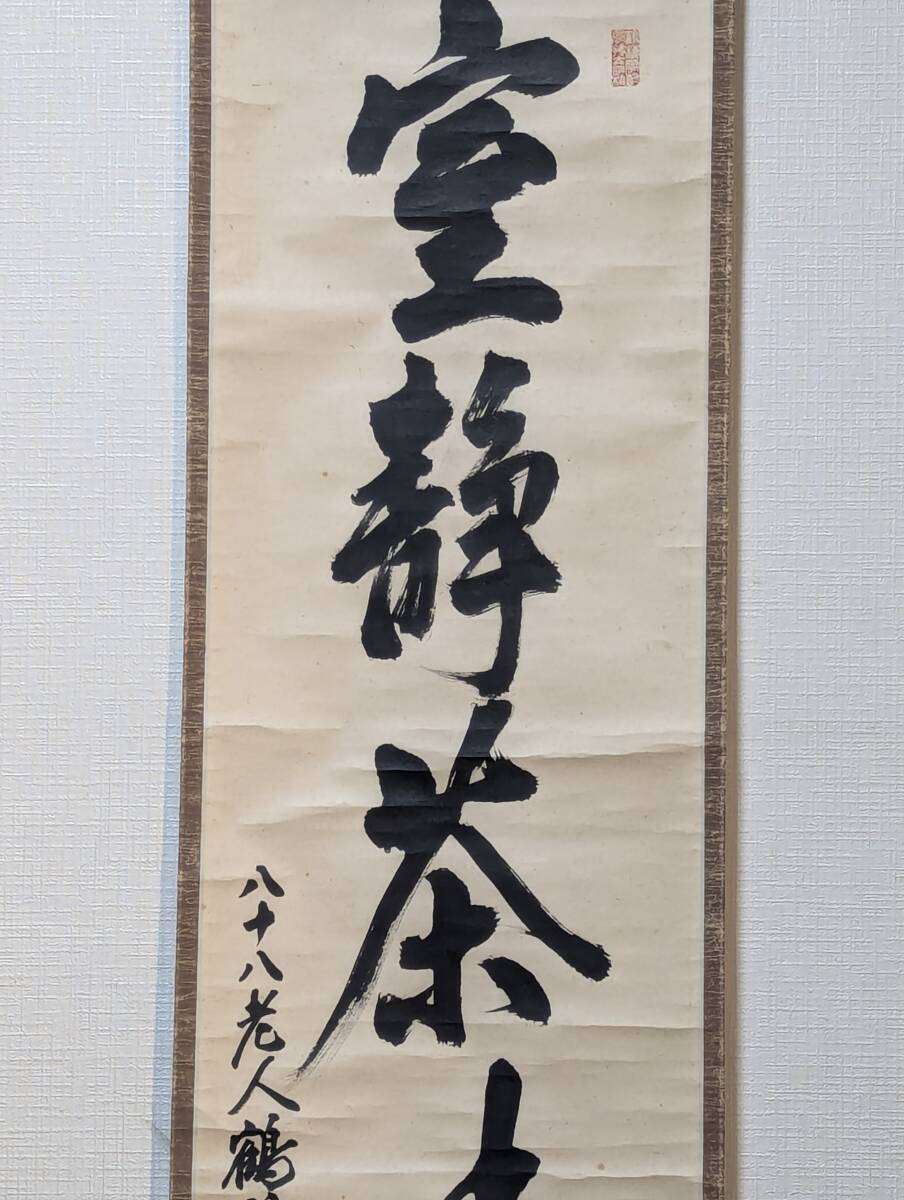 室静茶
八十八老人鶴